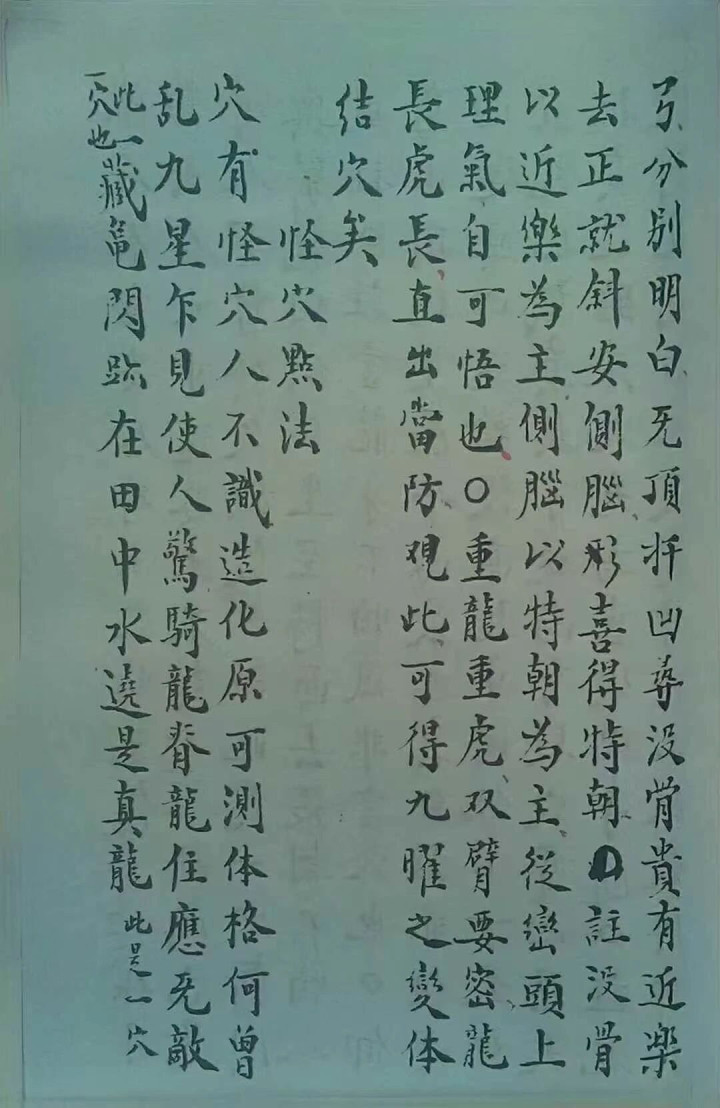 丂分別明白旡頂扦凹葬没骨貴有近楽
去正就斜安側腦形喜得特朝註没骨
以近樂為主側腦以特朝為主從巒頭上
理氣自可悟也〇重龍重虎双臂要密龍
長虎長直出當防观此可得九曜之变体
结穴矣
怪穴點法
穴有怪穴人不識造化原可測体格何曾
乱九星乍見使人驚騎龍脊龍住應旡敵
此一穴也藏龟閃跡在田中水遶是真龍此是一穴